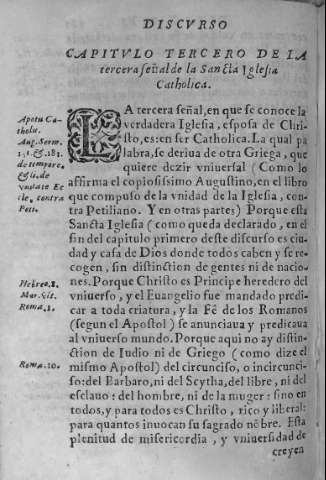 DISCVRSO
CAPITVLO TERCERO DE LA
tercera señal de la Sancta Iglesia
Catholica.
LA tercera señal, en que se conoce la
verdadera Iglesia, esposa de Chri-
sto, es: en ser Catholica. La qual pa
labra, se deriua de otra Griega, que
quiere dezir vniuersal (Como lo
affirma el copiosissimo Augustino, en el libro
que compuso de la vnidad de la Iglesia, con-
tra Petiliano. Y en otras partes) Porque esta
Sancta Iglesia (como queda declarado, en el
fin del capitulo primero deste discurso es ciu-
dad y casa de Dios donde todos caben y se re-
cogen, sin distinction de gentes ni de nacio-
nes. Porque Christo es Principe heredero del
vniuerso, y el Euangelio fue mandado predi-
car a toda criatura, y la Fê de los Romanos
(segun el Apostol) se anunciaua y predicaua
al vniuerso mundo. Porque aqui no ay distin-
ction de Iudio ni de Griego (como dize el
mismo Apostol) del circunciso, o incircunci-
so: del Barbaro, ni del Scytha, del libre, ni del
esclauo: del hombre, ni de la muger: sino en
todos, y para todos es Christo, rico y liberal:
para quantos inuocan su sagrado nõbre. Esta
plenitud de misericordia, y vniuersidad de
creyen
Apotu Ca-
tholu.
Aug. Serm.
131. & 181.
de tempore,
& li. de
vnitate Ec
cle. contra
Peti.
Hebreo. 1.
Mar. vlt.
Roma. 1.
Roma. 10.